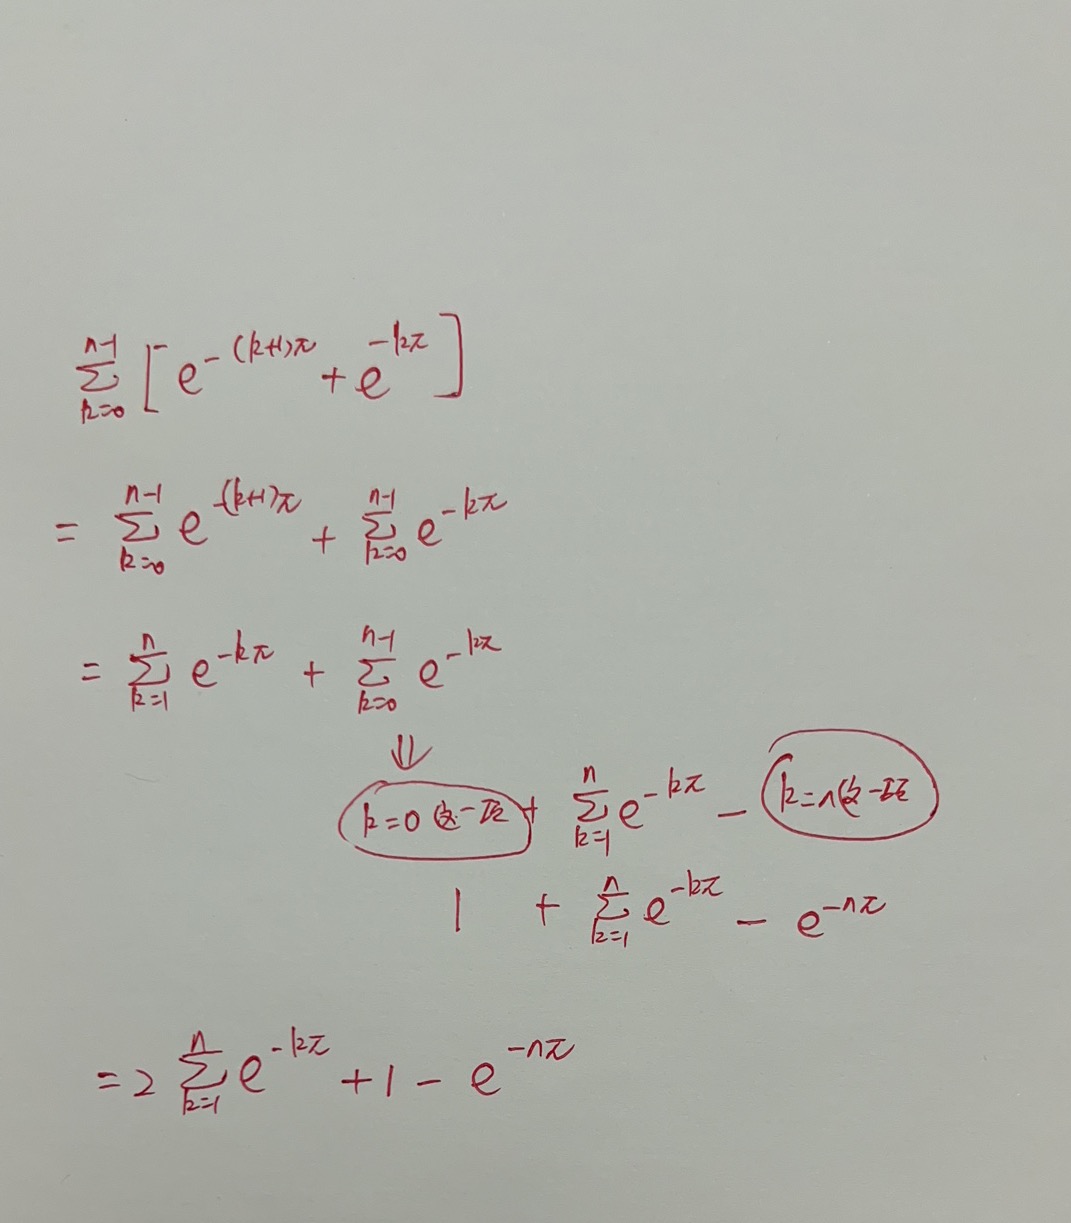 ∑_{k=0}^{n-1} [ e^{-(k+1)π} + e^{-kπ} ]
= ∑_{k=0}^{n-1} e^{-(k+1)π} + ∑_{k=0}^{n-1} e^{-kπ}
= ∑_{k=1}^{n} e^{-kπ} + ∑_{k=0}^{n-1} e^{-kπ}
⇓
k=0这一项 + ∑_{k=1}^{n} e^{-kπ} - k=n这一项
1 + ∑_{k=1}^{n} e^{-kπ} - e^{-nπ}
= 2 ∑_{k=1}^{n} e^{-kπ} + 1 - e^{-nπ}